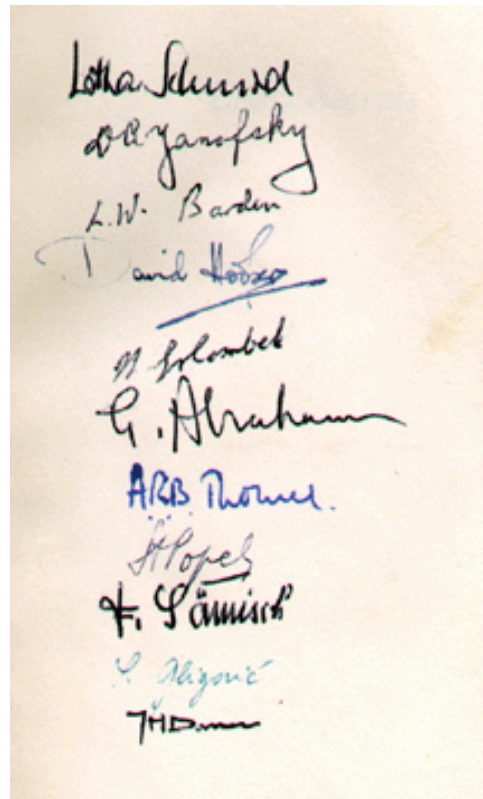 Lothar Schmid
D A Yanofsky
L.W. Barden
David Hooper
H Golombek
G. Abrahams
A.R.B. Thomas.
St Popel
F. Sämisch
S. Gligorić
JHDonner